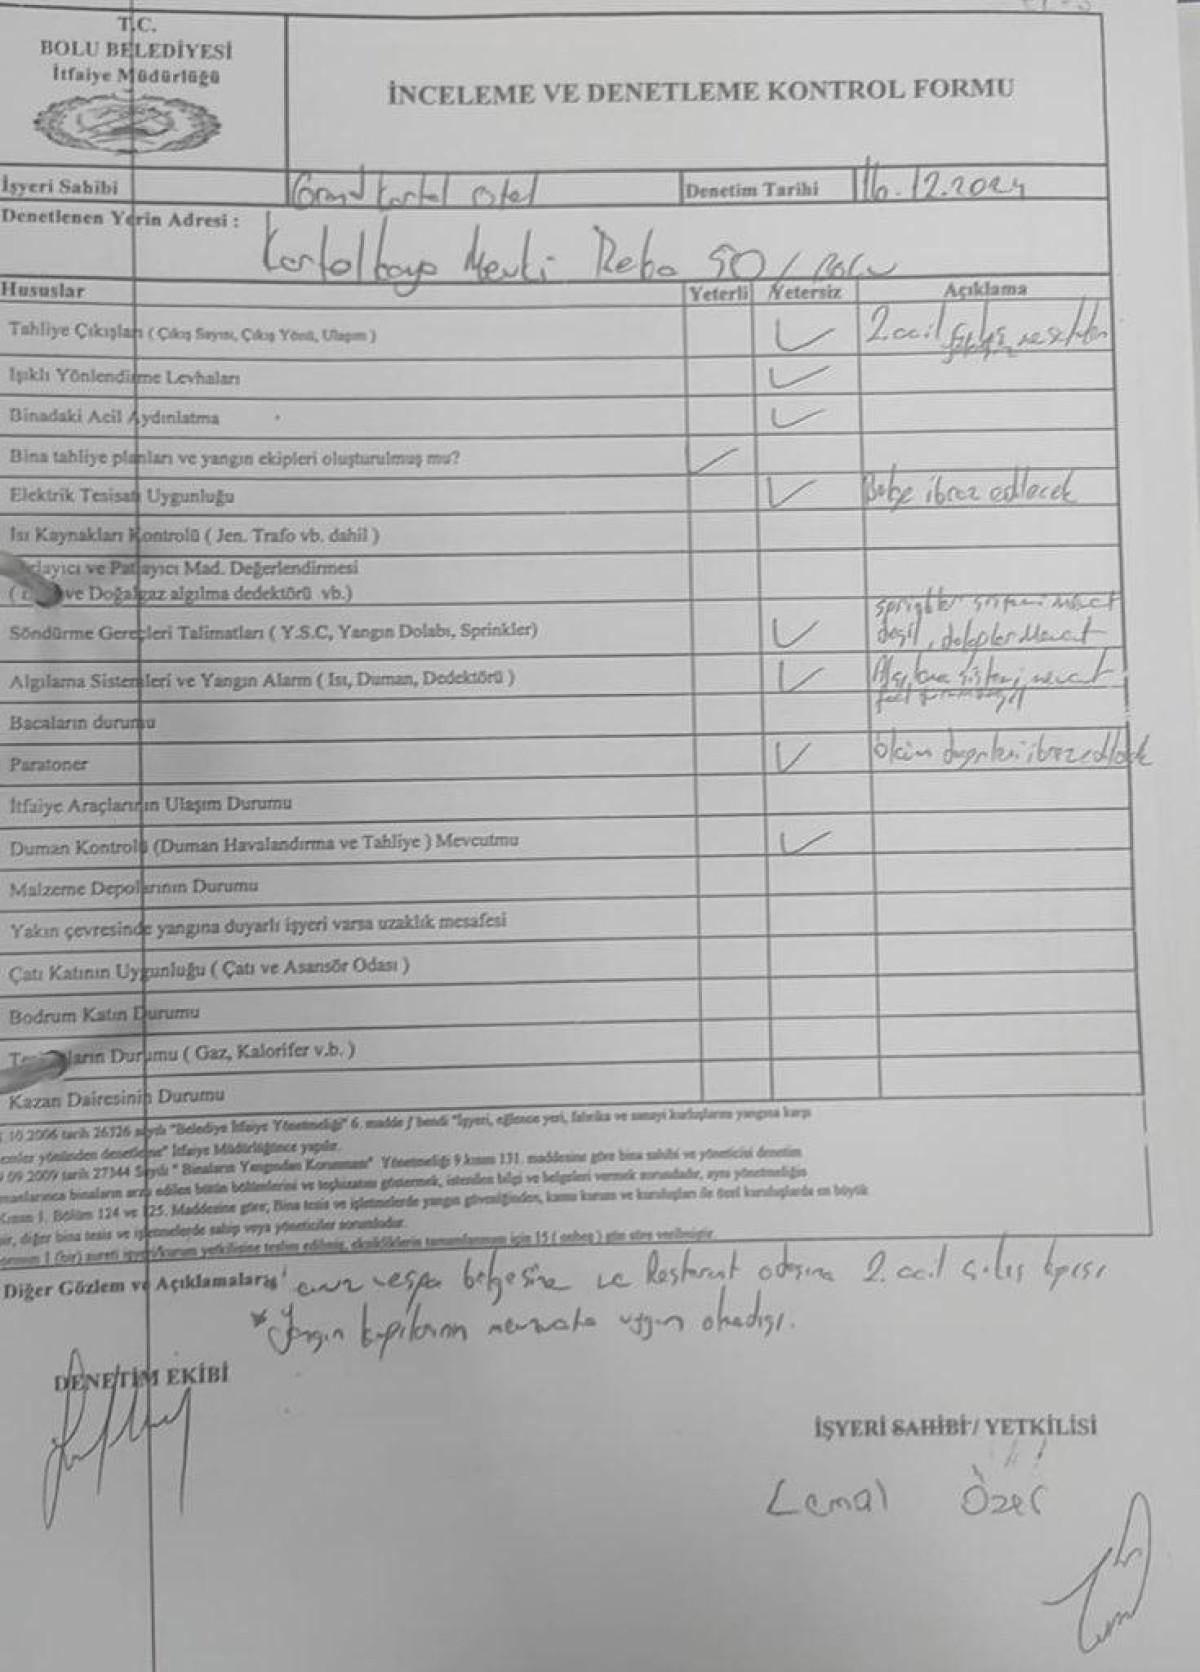 T.C.
BOLU BELEDİYESİ
İtfaiye Müdürlüğü
İNCELEME VE DENETLEME KONTROL FORMU
İşyeri Sahibi Grand Kartal Otel Denetim Tarihi 16.12.2024
Denetlenen Yerin Adresi : Kartalkaya Mevki / Bolu
Hususlar Yeterli Yetersiz Açıklama
Tahliye Çıkışları ( Çıkış Sayısı, Çıkış Yönü, Ulaşım ) 2. acil
Işıklı Yönlendirme Levhaları
Binadaki Acil Aydınlatma
Bina tahliye planları ve yangın ekipleri oluşturulmuş mu?
Elektrik Tesisatı Uygunluğu Belge ibraz edilecek
Isı Kaynakları Kontrolü ( Jen. Trafo vb. dahil )
ve Patlayıcı Mad. Değerlendirmesi
ve Doğalgaz algılma dedektörü vb.)
sistemi mevcut
Söndürme Gereçleri Talimatları ( Y.S.C, Yangın Dolabı, Sprinkler) değil, dolaplar mevcut
Algılama Sistemleri ve Yangın Alarm ( Isı, Duman, Dedektörü ) Algılama sistemi mevcut
Bacaların durumu
Paratoner ölçüm ibraz edilecek
İtfaiye Araçlarının Ulaşım Durumu
Duman Kontrolü (Duman Havalandırma ve Tahliye ) Mevcutmu
Malzeme Depolarının Durumu
Yakın çevresinde yangına duyarlı işyeri varsa uzaklık mesafesi
Çatı Katının Uygunluğu ( Çatı ve Asansör Odası )
Bodrum Katın Durumu
Durumu ( Gaz, Kalorifer v.b. )
Kazan Dairesinin Durumu
10.2006 tarih 26326 sayılı "Belediye İtfaiye Yönetmeliği" 6. madde f bendi "İşyeri, eğlence yeri, fabrika ve sanayi kuruluşlarını yangına karşı
yönünden denetleme" İtfaiye Müdürlüğünce yapılır.
09 2009 tarih 27344 Sayılı " Binaların Yangından Korunması" Yönetmeliği 9 kısım 131. maddesine göre bina sahibi ve yöneticisi denetim
binaların arzu edilen bütün bölümlerini ve teçhizatını göstermek, istenilen bilgi ve belgeleri vermek zorundadır, aynı yönetmeliğin
Kısım 1. Bölüm 124 ve 125. Maddesine göre; Bina tesis ve işletmelerde yangın güvenliğinden, kamu kurum ve kuruluşları ile özel kuruluşlarda en büyük
diğer bina tesis ve işletmelerde sahip veya yöneticiler sorumludur.
1 (bir) sureti işyeri/kurum yetkilisine teslim edilmiş, eksikliklerin tamamlanması için 15 ( onbeş ) gün süre verilmiştir.
Diğer Gözlem ve Açıklamalar belgesine ve Restorant odasına 2. acil çıkış kapısı
* Yangın kapılarının mevzuata uygun olmadığı.
DENETİM EKİBİ
İŞYERİ SAHİBİ / YETKİLİSİ
Cemal Özer